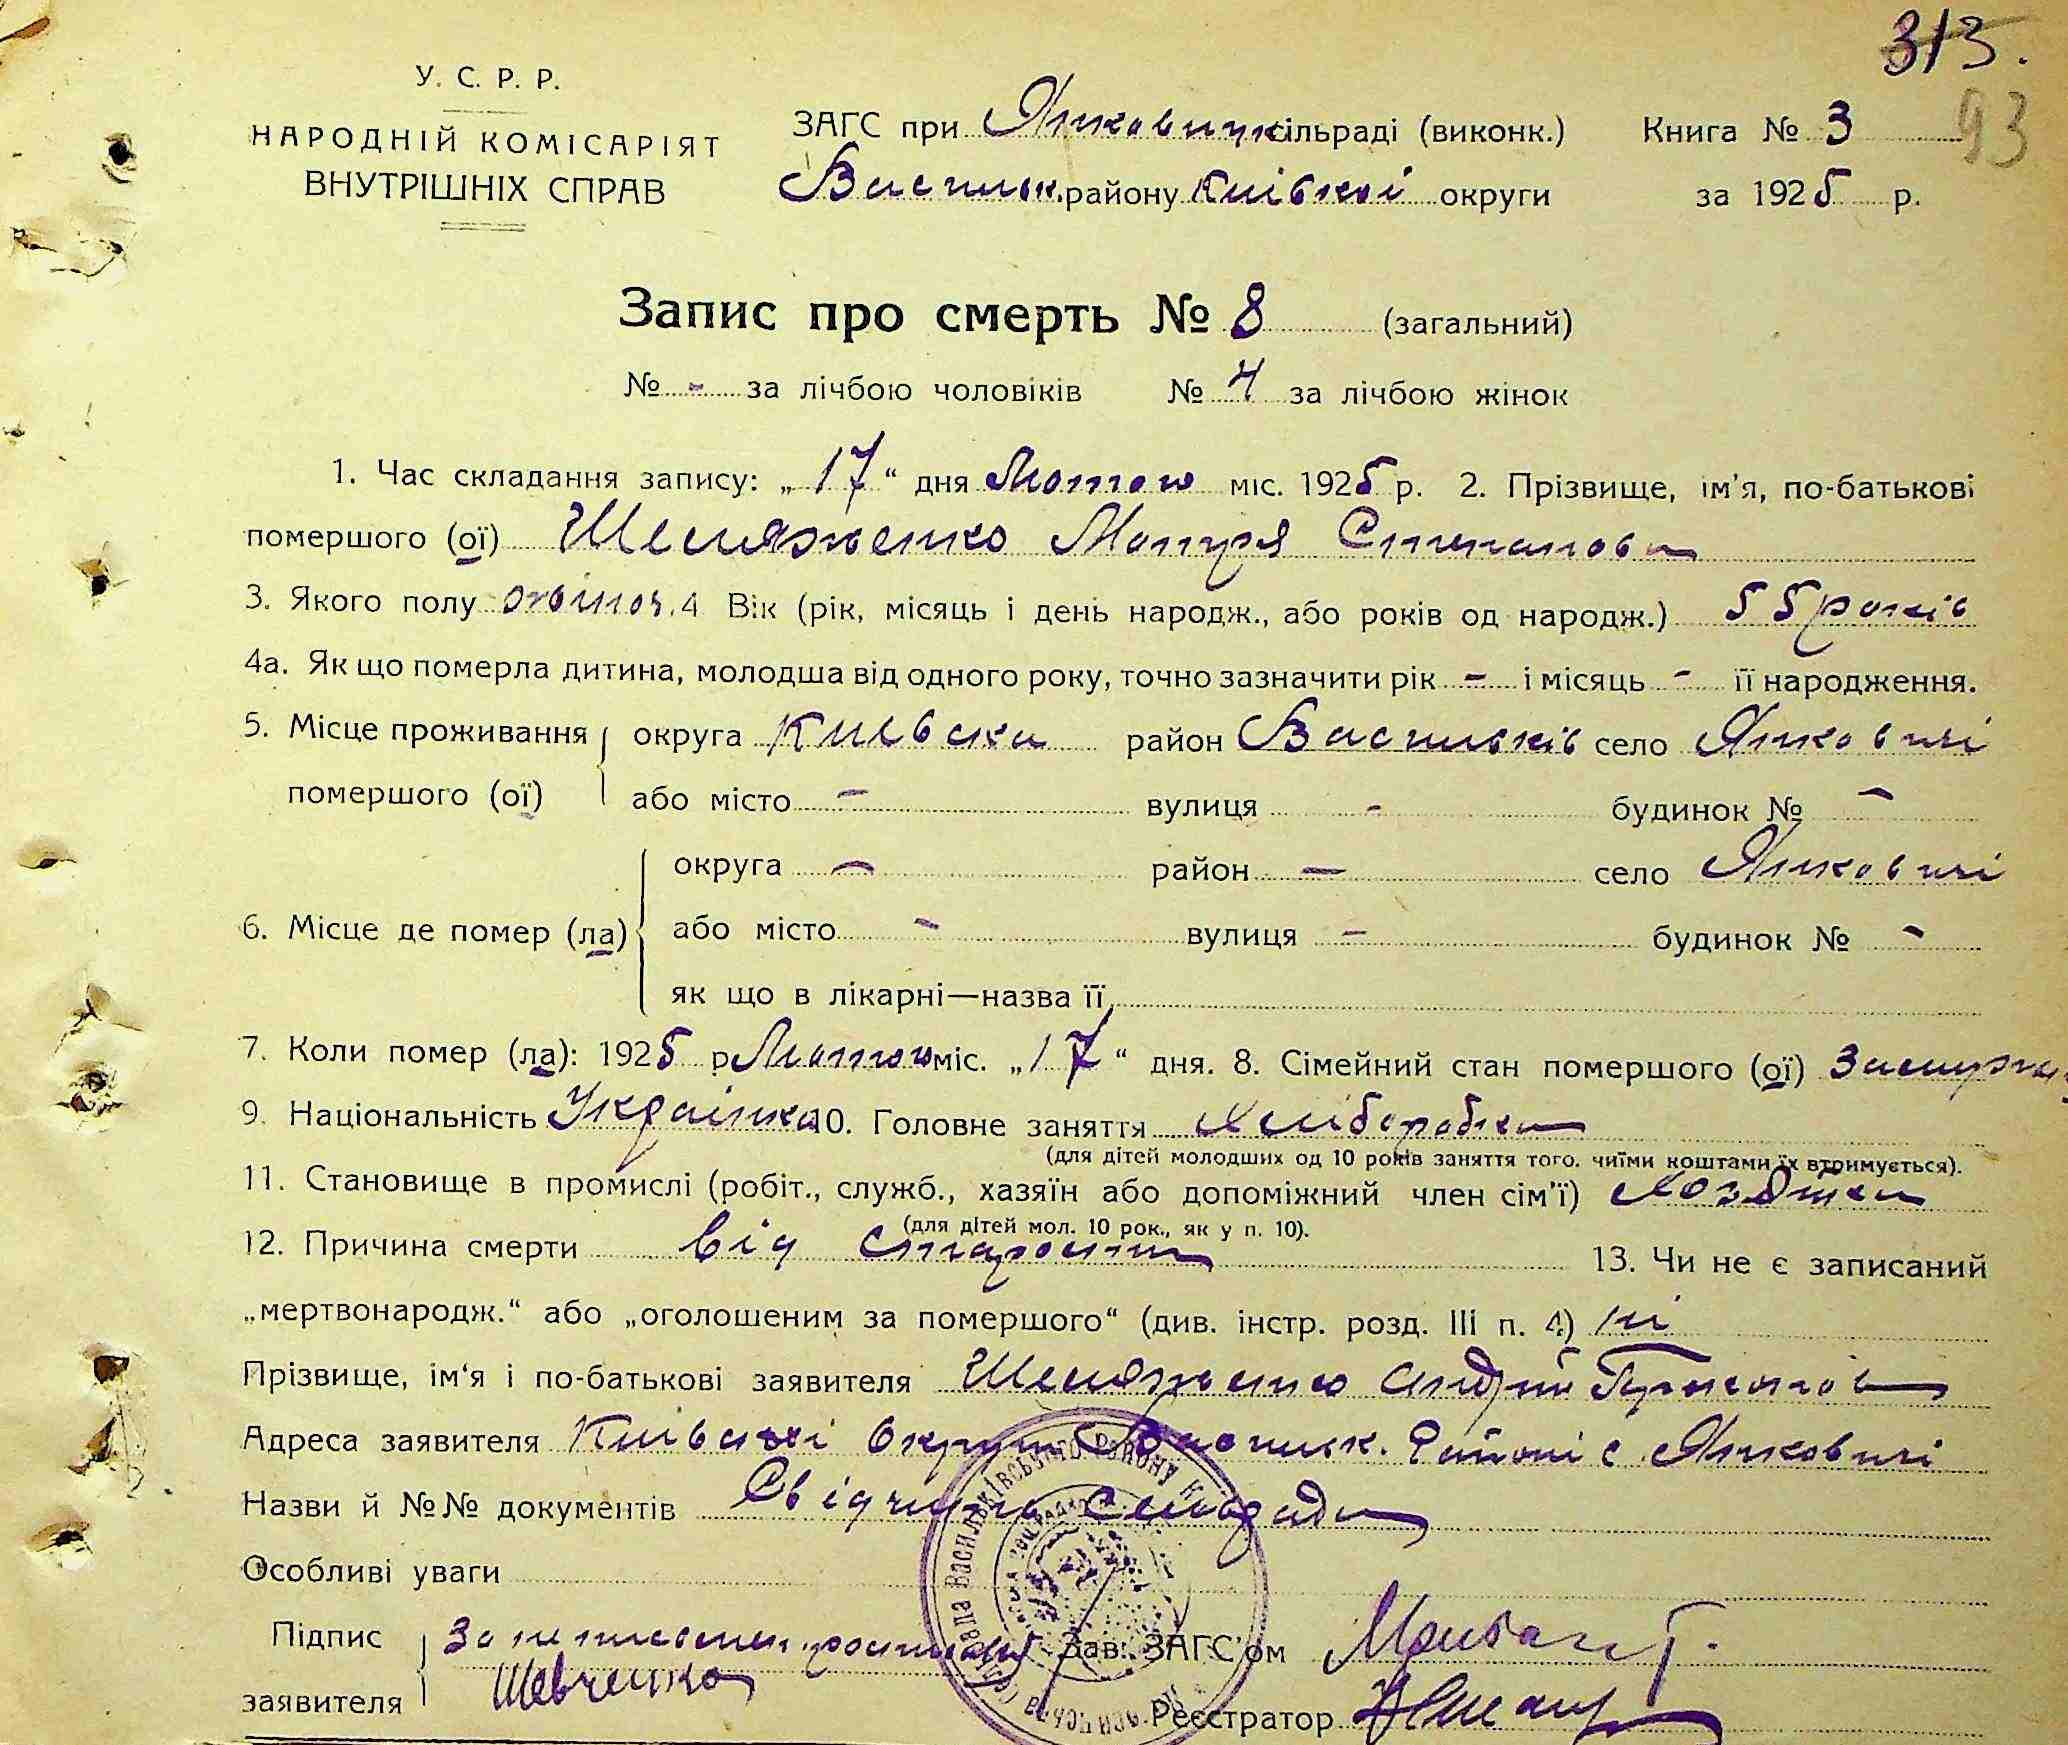 313.
93
У. С. Р. Р.
НАРОДНІЙ КОМІСАРІЯТ
ВНУТРІШНІХ СПРАВ
ЗАГС при Янковицк. сільраді (виконк.)
Васильк. району Київской округи
Книга № 3
за 1925 р.
Запис про смерть № 8 (загальний)
№ - за лічбою чоловіків № 4 за лічбою жінок
1. Час складання запису: „17“ дня Лютого міс. 1925 р. 2. Прізвище, ім'я, по-батькові
помершого (ої) Шеляженко Мотря Степанови
3. Якого полу жіноч. 4 Вік (рік, місяць і день народж., або років од народж.) 55 років
4а. Як що померла дитина, молодша від одного року, точно зазначити рік - і місяць - її народження.
5. Місце проживання округа Киівска район Васильків село Янковичі
помершого (ої) або місто - вулиця - будинок № -
округа - район - село Янковичі
6. Місце де помер (ла) або місто - вулиця - будинок № -
як що в лікарні—назва її
7. Коли помер (ла): 1925 р Лютого міс. „17“ дня. 8. Сімейний стан помершого (ої) Замужня
9. Національність Українка 10. Головне заняття Хліборобка
(для дітей молодших од 10 років заняття того. чиїми коштами їх втримується).
11. Становище в промислі (робіт., служб., хазяїн або допоміжний член сім'ї) Хозяйка
(для дітей мол. 10 рок., як у п. 10).
12. Причина смерти від старости 13. Чи не є записаний
„мертвонародж.“ або „оголошеним за помершого“ (див. інстр. розд. III п. 4) ні
Прізвище, ім'я і по-батькові заявителя Шеляженко Андрій
Адреса заявителя Київскі округи Васильк. Районі с Янковичі
Назви й №№ документів Свідчить сільради
Особливі уваги
Підпис За неписьмен. росписавсь Зав. ЗАГС'ом
заявителя Шевченко Реєстратор
ВАСИЛЬКІВСЬКОГО РАЙОНУ